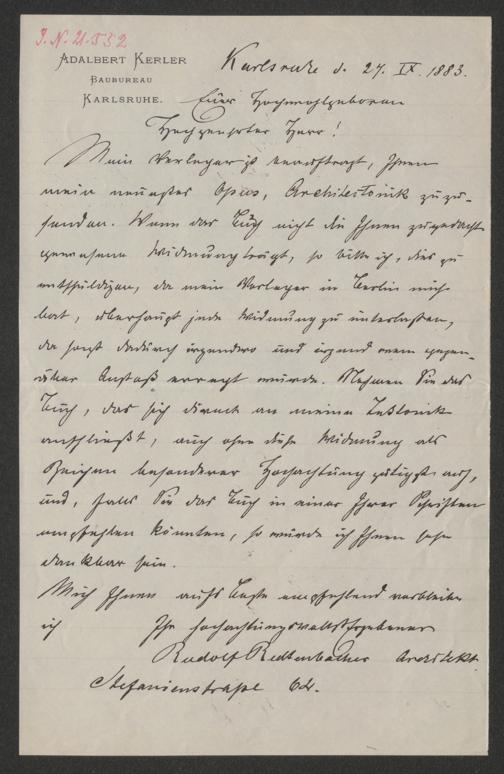 J.N. 21.552
ADALBERT KERLER
BAUBUREAU
KARLSRUHE.
Karlsruhe d. 27. IX. 1883.
Euer Hochwohlgeboren
Hochgeehrter Herr!
Mein Verleger ist beauftragt, Ihnen
mein neuestes Opus, Architektonik zuzu-
senden. Wenn das Buch nicht die Ihnen zugedacht
gewesene Widmung trägt, so bitte ich, dies zu
entschuldigen, da mein Verleger in Berlin mich
bat, überhaupt jede Widmung zu unterlassen,
da sonst dadurch irgendwo und irgend wem gegen-
über Anstoß erregt würde. Nehmen Sie das
Buch, das sich direct an meine Tektonik
anschließt, auch ohne diese Widmung als
Zeichen besonderer Hochachtung gütigst auf,
und, falls Sie das Buch in einer Ihrer Schriften
empfehlen könnten, so würde ich Ihnen sehr
dankbar sein.
Mich Ihnen aufs Beste empfehlend verbleibe
ich Ihr hochachtungsvollst Ergebener
Rudolf Redtenbacher Architekt.
Stefanienstraße